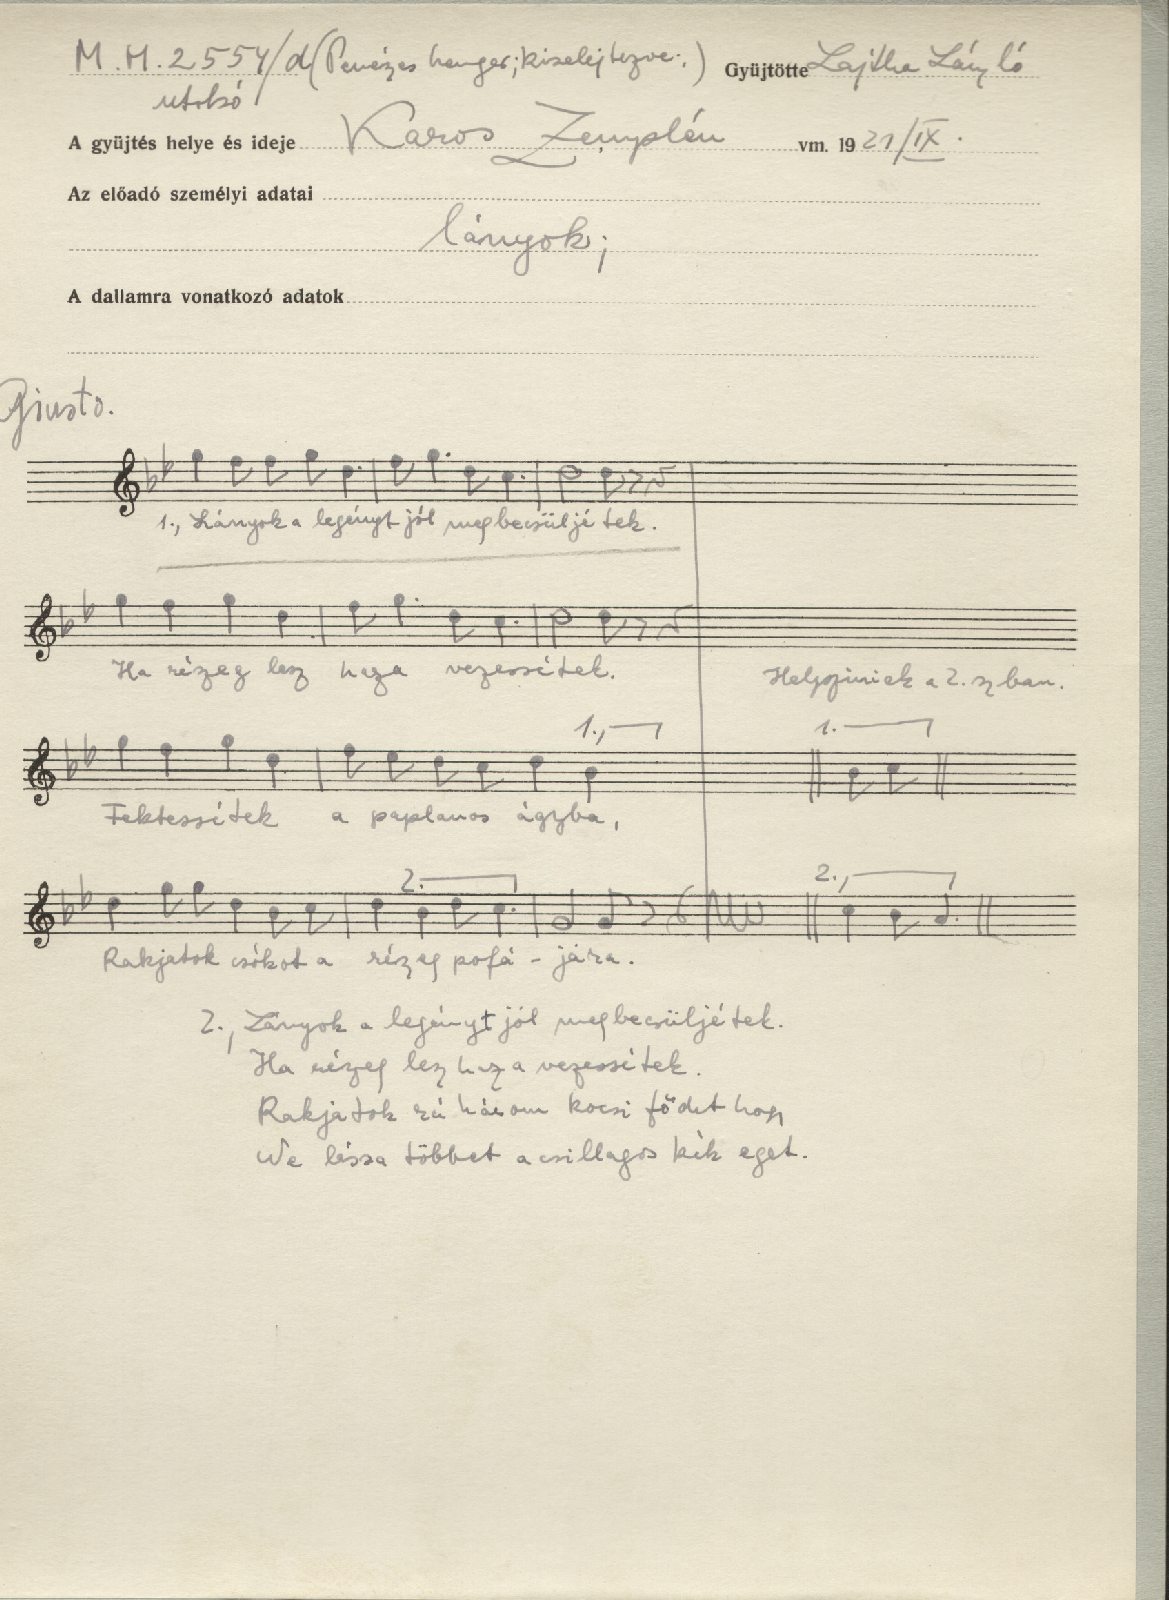 M. H. 2554/d (Penészes henger; kiselejtezve.) Gyüjtötte Lajtha László
utolsó
A gyüjtés helye és ideje Karos Zemplén vm. 1921/IX.
Az előadó személyi adatai
lányok;
A dallamra vonatkozó adatok
Giusto.
1., Lányok a legényt jól megbecsüljétek.
Ha részeg lesz haza vezessétek. a 2. szban.
1., 1.
Fektessétek a paplanos ágyba,
2. 2.,
Rakjatok csókot a részeg pofá - jára.
2., Lányok a legényt jól megbecsüljétek.
Ha részeg lesz haza vezessétek.
Rakjatok rá három kocsi födet hogy
Ne lássa többet a csillagos kék eget.